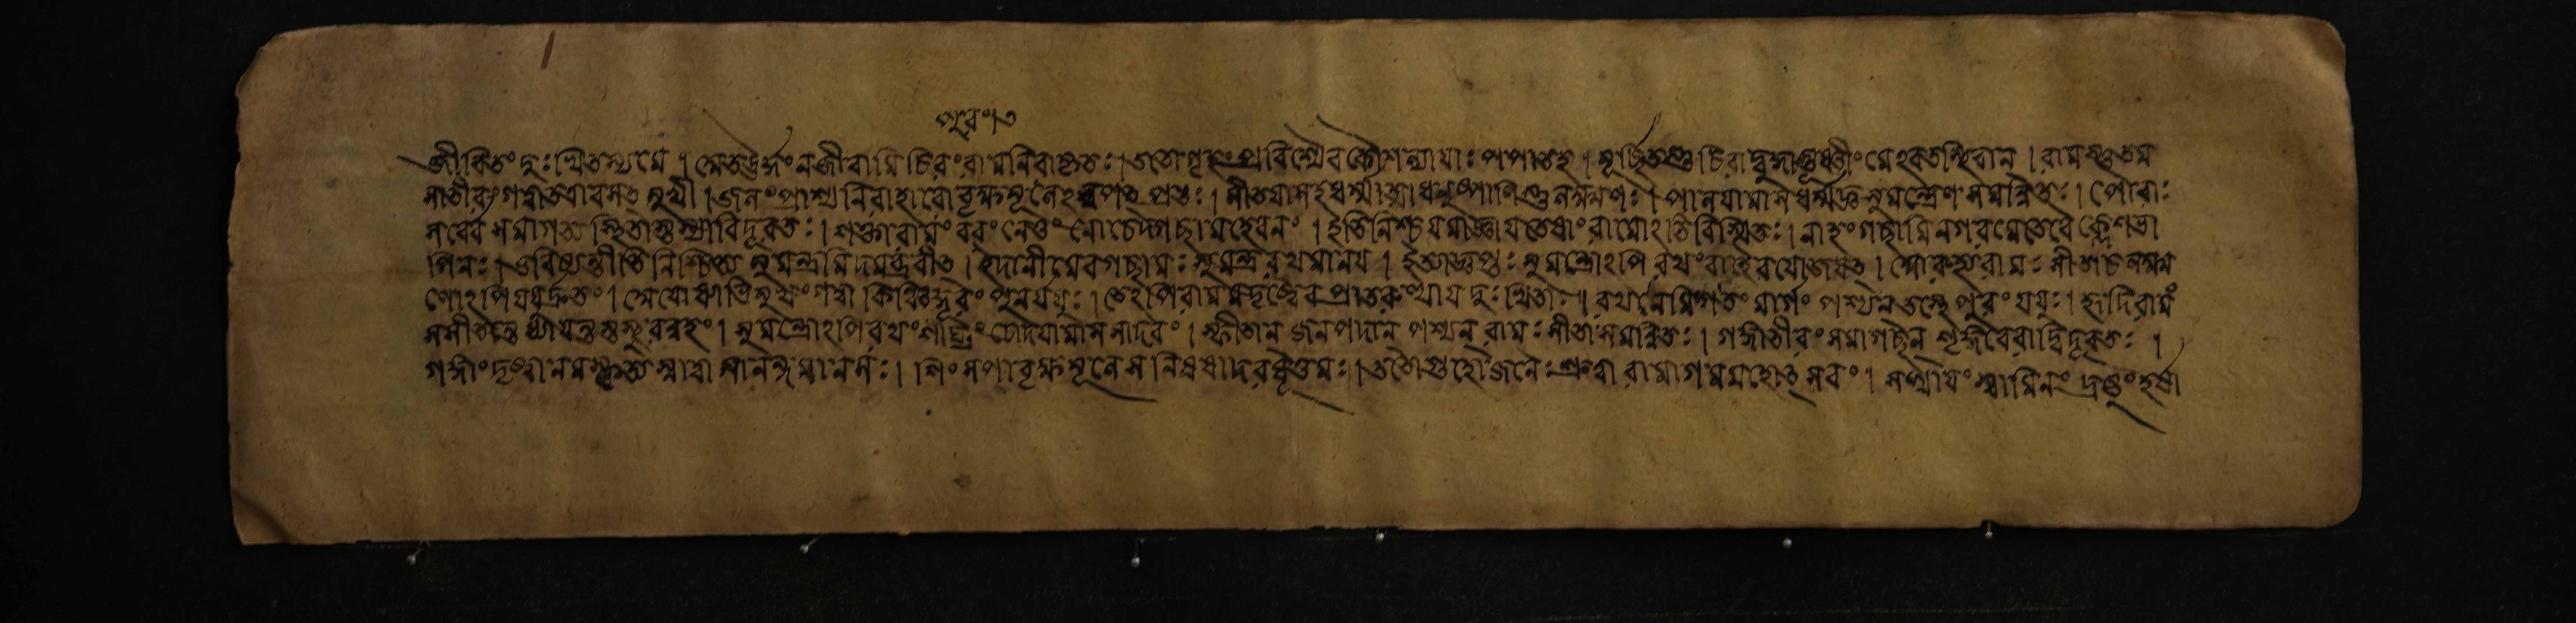 পুরং।৩
জীবিতং দুঃখিতস্য মে । অতঊর্দ্ধং ন জীবামি চিরং রামবিনাকৃতঃ । ততো গৃহং প্রবিশ্যৈব কৌশল্যাযাঃ পপাত হ । মূর্ছিতশ্চ চিরাদ্বুদ্ধা তূষ্ণীমেবাবতস্থিবান । রামস্তু তম
সাতীরং গত্বা তত্রাবসৎ সুখী । জলং প্রাশ্য নিরাহারো বৃক্ষমূলেঽস্বপৎ প্রভুঃ । সীতযা সহ ধর্ম্মাত্মা ধনুষ্পাণিস্তু লক্ষ্মণঃ । পালযামাস ধর্ম্মজ্ঞ সুমন্ত্রেণ সমন্বিতঃ । পৌরাঃ
সর্বে সমাগত্য স্থিতাস্তস্যাবিদূরতঃ । শক্তা রামং বরং নেতুং নোচেদ্গছামহে বনং । ইতি নিশ্চযমাজ্ঞায তেষাং রামোঽতিবিস্মিতঃ । নাহং গছামি নগরমেতে বৈ ক্লেশভা
গিনঃ । ভবিষ্যন্তীতি নিশ্চিত্য সুমন্ত্রমিদমব্রবীৎ । ইদানীমেব গছামঃ সুমন্ত্র রথমানয । ইত্যাজ্ঞপ্তঃ সুমন্ত্রোঽপি রথং বাহৈরযোজযৎ । আরুহ্য রামঃ সীতা চ লক্ষ্ম
ণোঽপি যযুর্দ্রুতং । অযোধ্যাভিমুখং গত্বা কিঞ্চিদ্দূরং পুনর্যযুঃ । তেঽপি রামমদৃষ্ট্বৈব প্রাতরুত্থায দুঃখিতাঃ । রথনেমিগতং মার্গং পশ্যন্তস্তে পুরং যযুঃ । হৃদি রামং
সসীতং তে ধ্যাযন্তস্তস্থুরন্বহং । সুমন্ত্রোঽপি রথং শীঘ্রং চোদযামাস সাদরং । স্ফীতান জনপদান পশ্যন রামঃ সীতাসমন্বিতঃ । গঙ্গাতীরং সমাগছন শৃঙ্গিবেরাদ্বিদূরতঃ ।
গঙ্গাং দৃষ্ট্বা নমস্কৃত্য স্নাত্বা সানন্দমানসঃ । শিংসপাবৃক্ষমূলে স নিষষাদ রঘূত্তমঃ । ততো গুহো জনৈঃ শ্রুত্বা রামাগমমহোৎসবং । সখাযং স্বামিনং দ্রষ্টুং হর্ষা